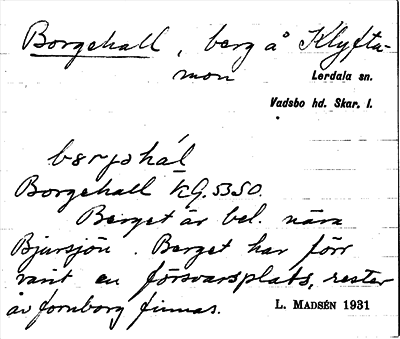 Borgehall, berg å Klyfta-
mon
Lerdala sn.
Vadsbo hd. Skar. l.
Borgehall kg. 53 SO.
Berget är bel. nära
Bjursjön. Berget har förr
varit en försvarsplats, rester
av fornborg finnas.
L. MADSÉN 1931